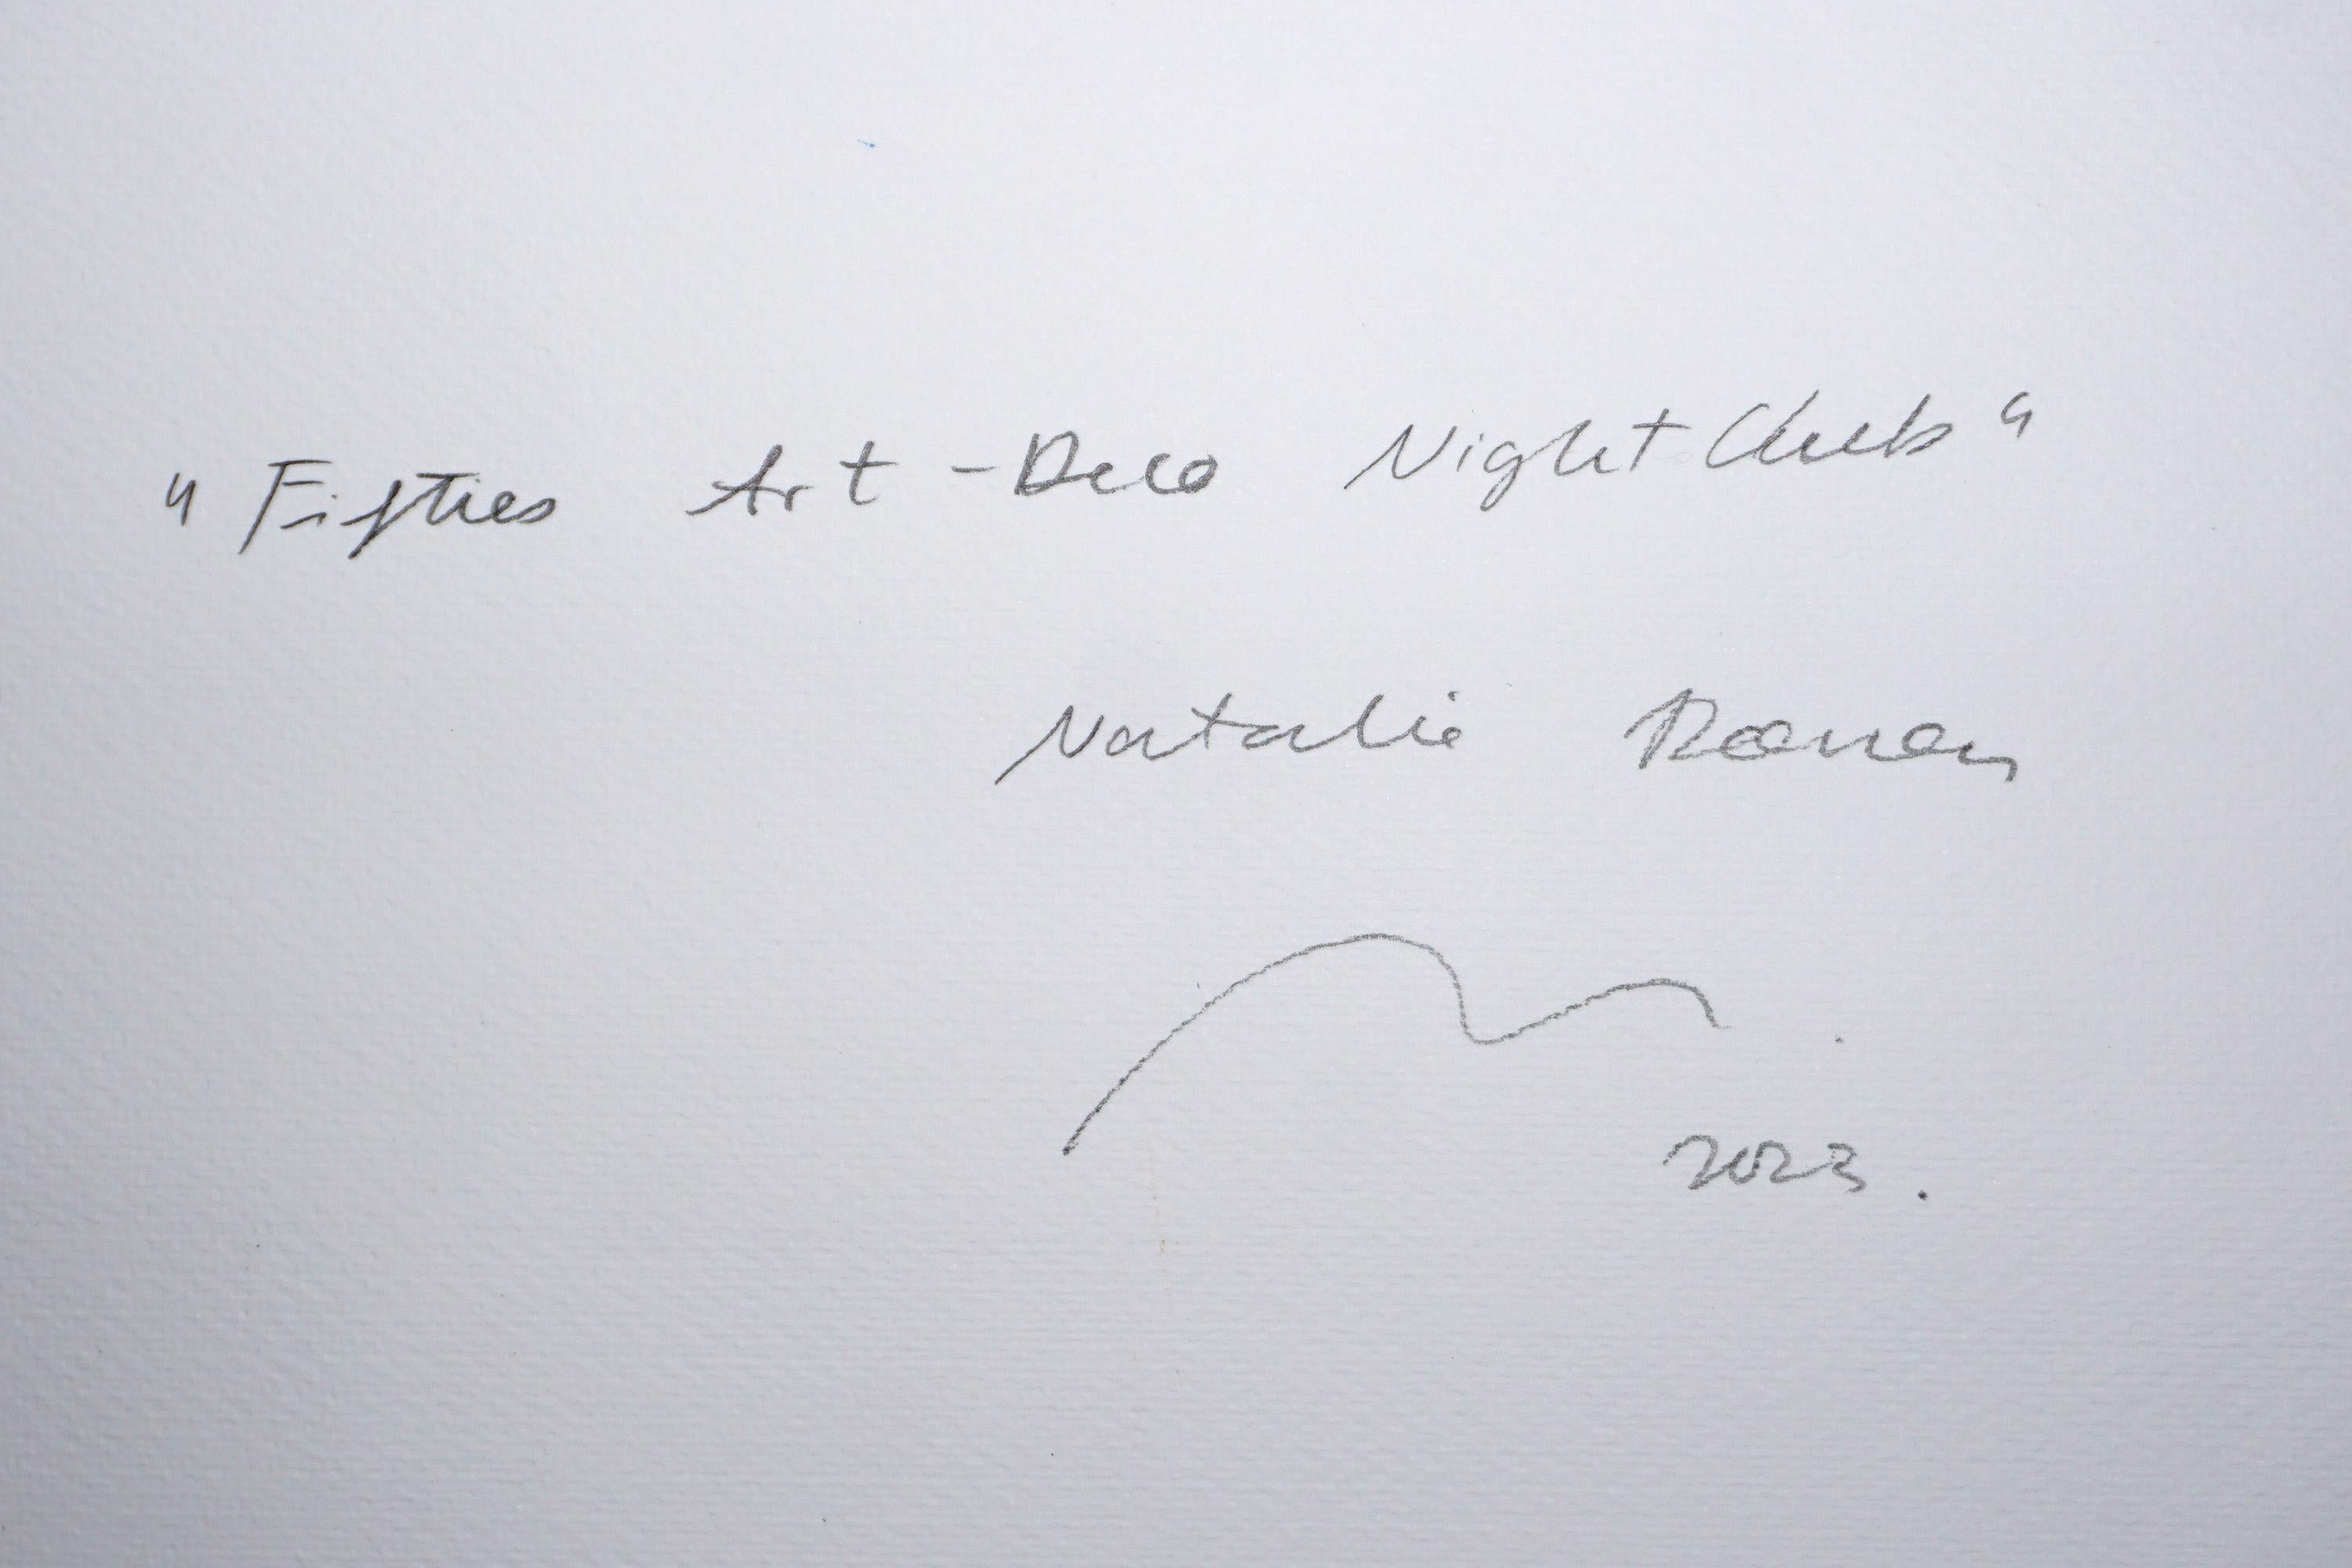 "Fifties Art-Deco Night Club"
Natalie
2023.